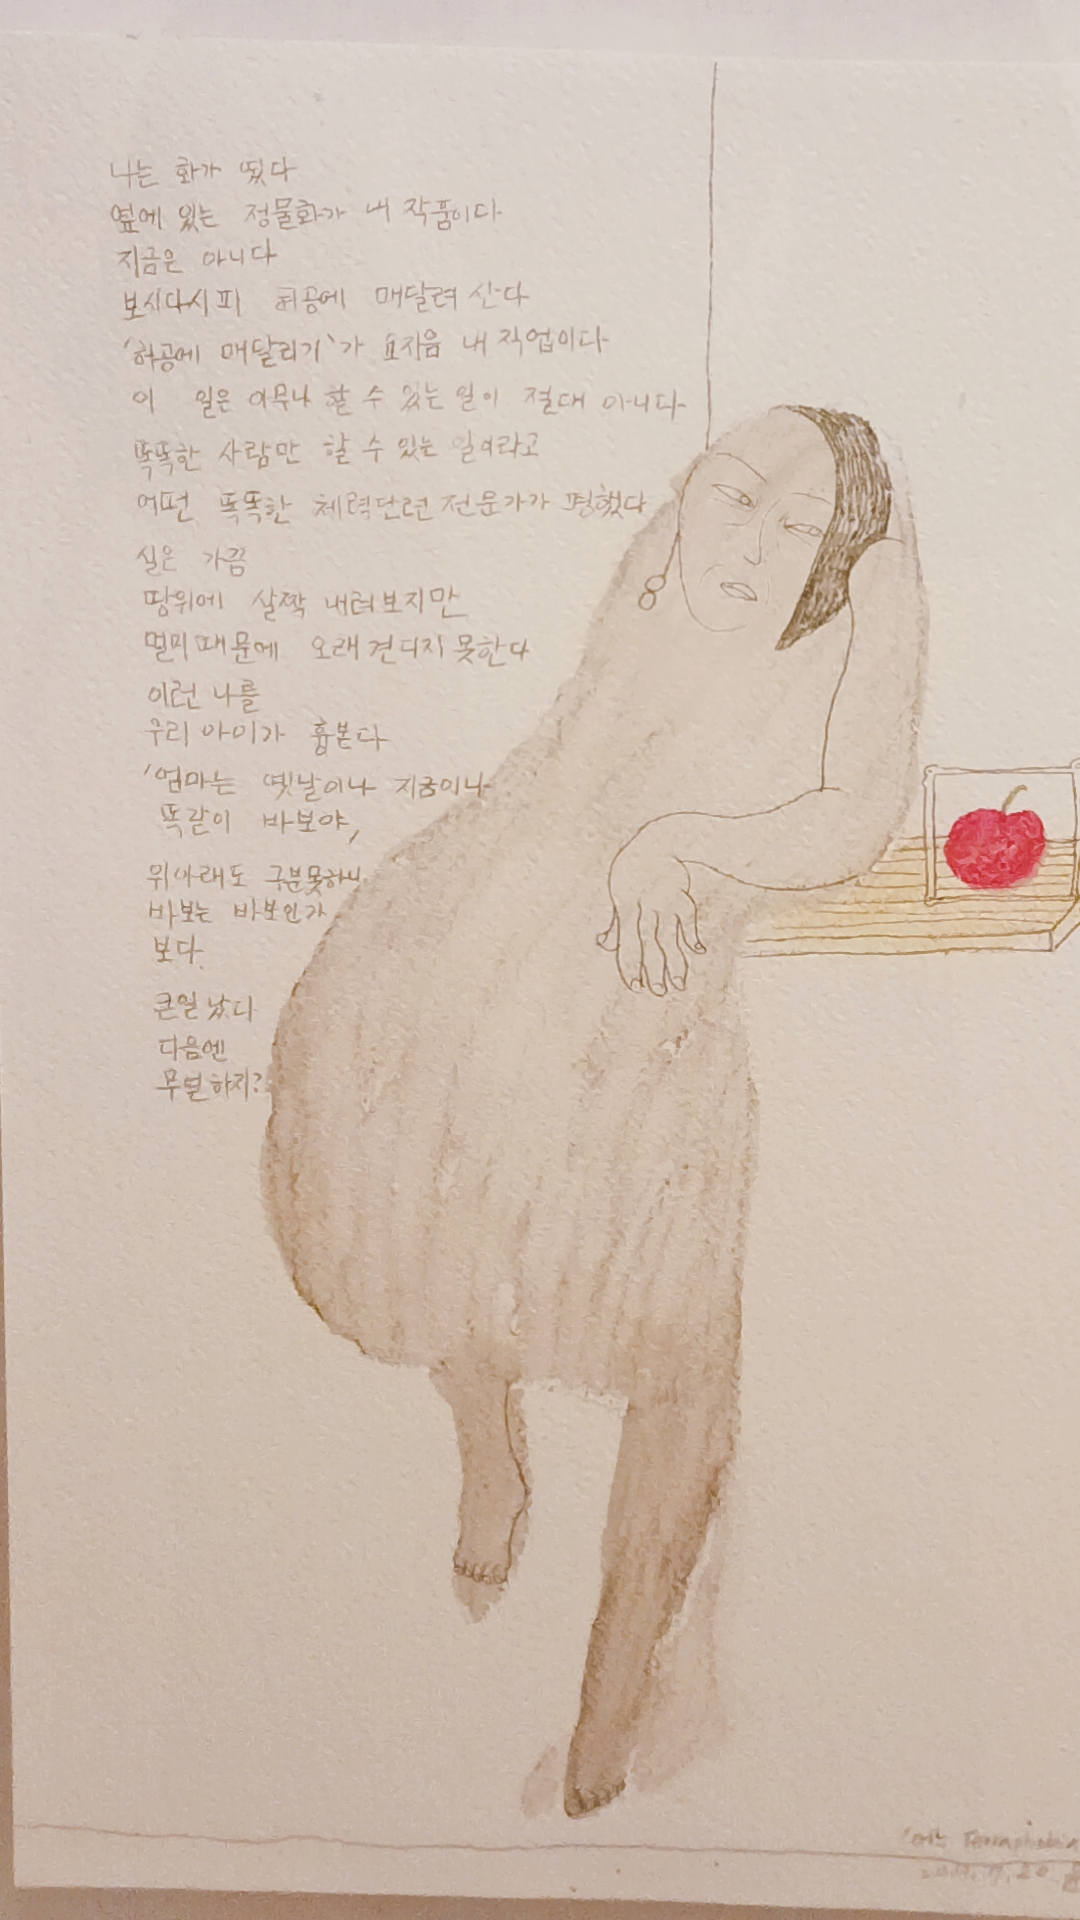 나는 화가 였다
옆에 있는 정물화가 내 작품이다
지금은 아니다
보시다시피 허공에 매달려 산다
'허공에 매달리기'가 요지음 내 직업이다
이 일은 아무나 할 수 있는 일이 절대 아니다
똑똑한 사람만 할 수 있는 일이라고
어떤 똑똑한 체력단련 전문가가 평했다
실은 가끔
땅위에 살짝 내려보지만
멀미때문에 오래 견디지 못한다
이런 나를
우리 아이가 흉본다
'엄마는 옛날이나 지금이나
똑같이 바보야,
위아래도 구분못하니
바보는 바보인가
보다.
큰일 났다
다음엔
무얼하지?
'어느 Terraphobia